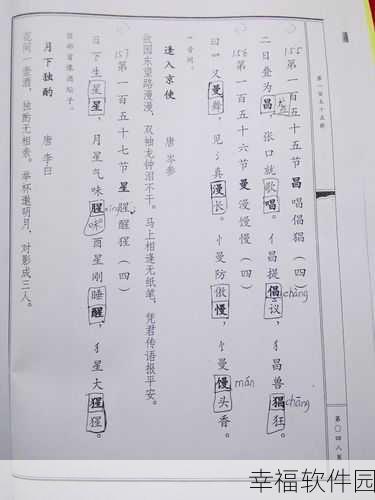 第一百五十五节
155 第一百五十五节 昌 唱倡猖（四）
二日叠为昌，张口就歌唱。亻昌提倡议，犭昌兽猖狂。
chàng
chāng
156 第一百五十六节 曼 漫慢馒（四）
曰一又曼舞，见氵真漫长。忄曼防傲慢，饣曼馒头香。
mán
一音同。
逢入京使 唐 岑参
故园东望路漫漫，双袖龙钟泪不干。马上相逢无纸笔，凭君传语报平安。
157 第一百五十七节 星 腥醒猩（四）
日下生星星，月星气味腥。酉星刚睡醒，犭星大猩猩。
xīng
味
酉部首像酒坛子。
月下独酌 唐 李白
花间一壶酒，独酌无相亲。举杯邀明月，对影成三人。
第〇四八页
幸福软件园